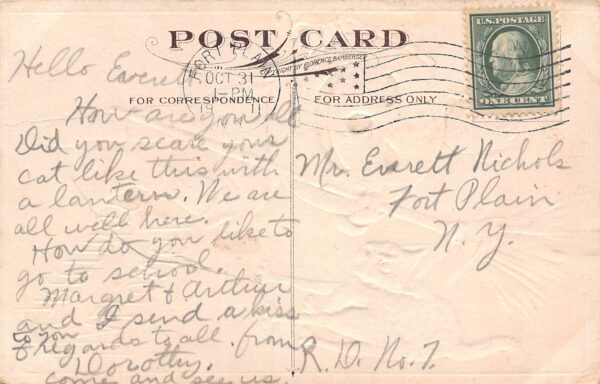 POST CARD
U.S. POSTAGE
ONE CENT
FORT PLAIN
OCT 31
1-PM
1911
N.Y.
COPYRIGHT BY FLORENCE BAMBERGER
FOR CORRESPONDENCE
FOR ADDRESS ONLY
Hello Everett
How are you all
Did you scare your
cat like this with
a lantern. We are
all well here.
How do you like to
go to school.
Margret & Arthur
and I send a kiss
to you
& regards to all. from
Dorothy.
come and see us.
Mr. Everett Nichols
Fort Plain
N. Y.
R. D. No. 7.